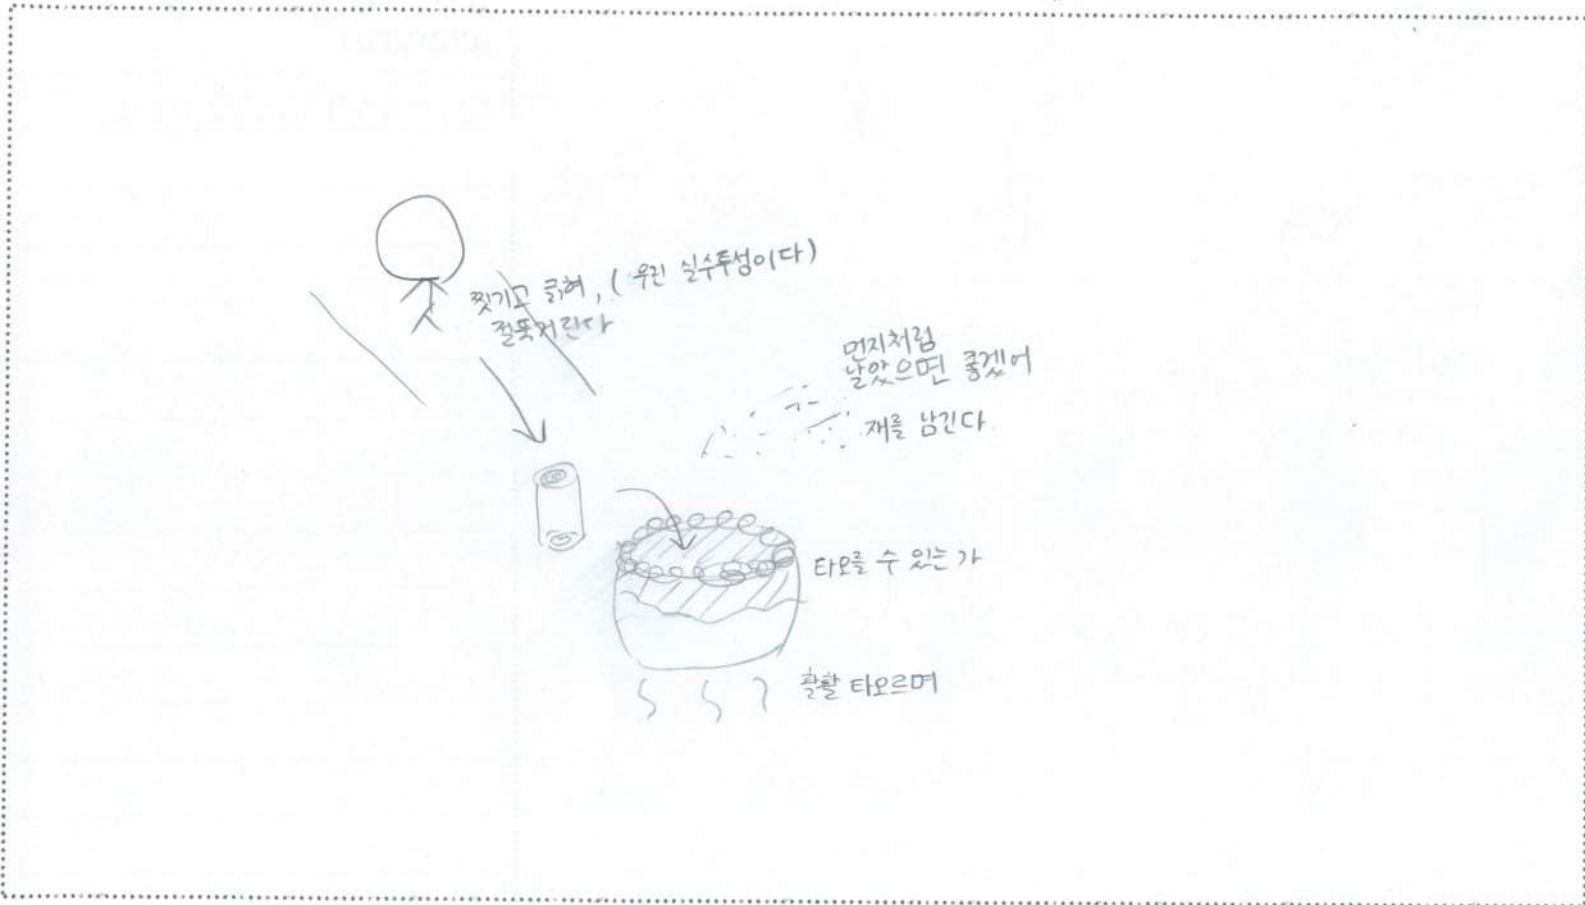 찢기고 긁혀, (우린 실수투성이다)
절뚝거린다
먼지처럼
날았으면 좋겠어
재를 남긴다
타오를 수 있는가
활활 타오르며